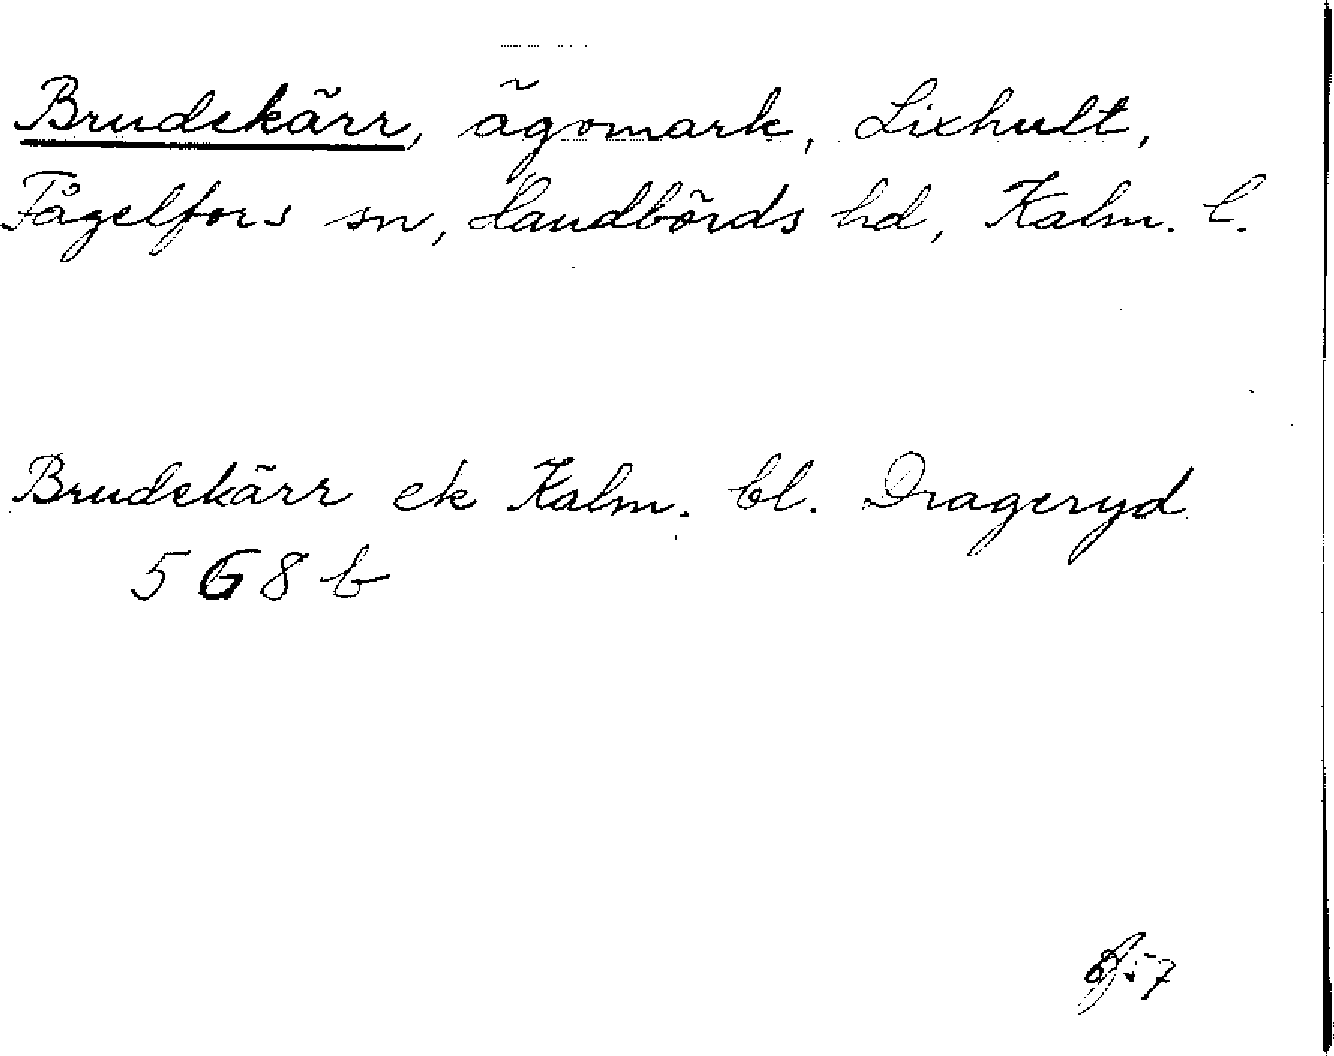 Brudekärr, ägomark, Lixhult,
Fågelfors sn, Handbörds hd, Kalm. l.
Brudekärr ek Kalm. bl. Drageryd
5 G 8 b
57